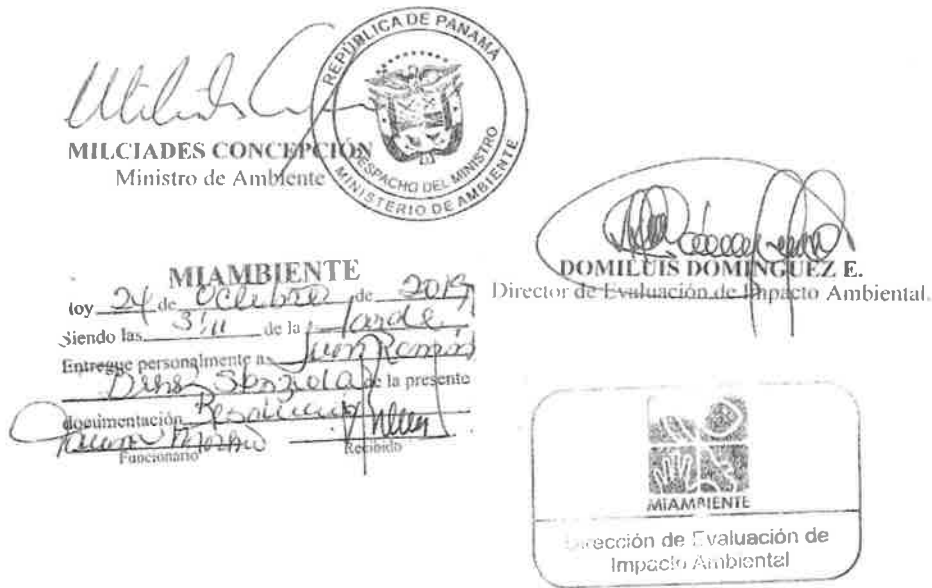 REPÚBLICA DE PANAMÁ
DESPACHO DEL MINISTRO
MINISTERIO DE AMBIENTE
MILCIADES CONCEPCIÓN
Ministro de Ambiente
DOMILUIS DOMINGUEZ E.
Director de Evaluación de Impacto Ambiental.
MIAMBIENTE
Hoy 24 de Octubre de 2019
Siendo las 3:11 de la tarde
Entregue personalmente a Juan Ramón
de la presente
documentación Resolución
Funcionario Recibido
MIAMBIENTE
Dirección de Evaluación de
Impacto Ambiental